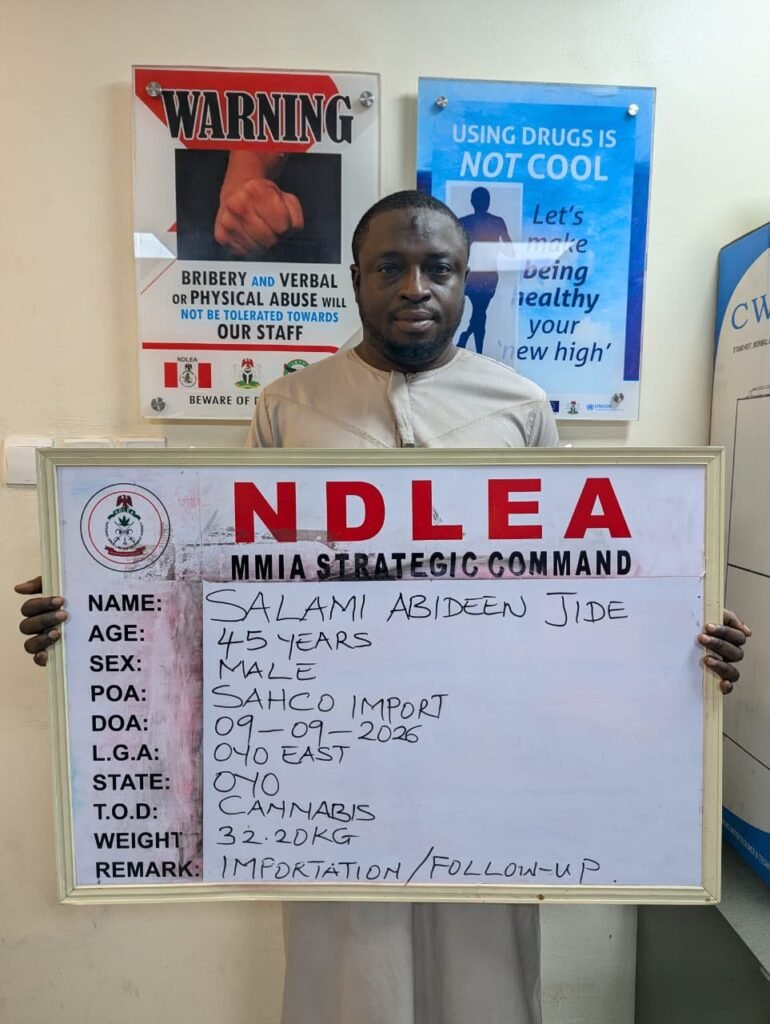 WARNING
BRIBERY AND VERBAL
OR PHYSICAL ABUSE WILL
NOT BE TOLERATED TOWARDS
OUR STAFF
NDLEA
BEWARE OF
USING DRUGS IS
NOT COOL
Let's
make
being
healthy
your
'new high'
UNODC
CW
NDLEA
MMIA STRATEGIC COMMAND
NAME: SALAMI ABIDEEN JIDE
AGE: 45 YEARS
SEX: MALE
POA: SAHCO IMPORT
DOA: 09-09-2026
L.G.A: OYO EAST
STATE: OYO
T.O.D: CANNABIS
WEIGHT 32.20KG
REMARK: IMPORTATION/FOLLOW-UP.